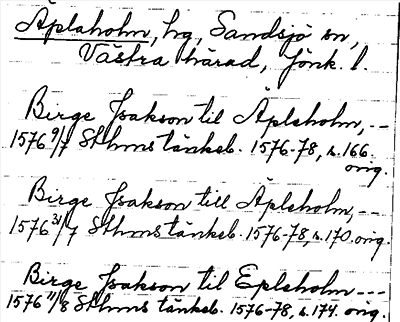 Äplaholm, hg, Sandsjö sn,
Västra härad, Jönk. l.
Birge Joakson til Äplaholm, --
1576 9/7 Sthms tänkeb. 1576-78, s. 166.
orig.
Birge Joakson till Äplaholm, --
1576 31/7 Sthms tänkeb. 1576-78, s. 170. orig.
Birge Joakson til Eplaholm ---
1576 11/8 Sthms tänkeb. 1576-78, s. 174. orig.